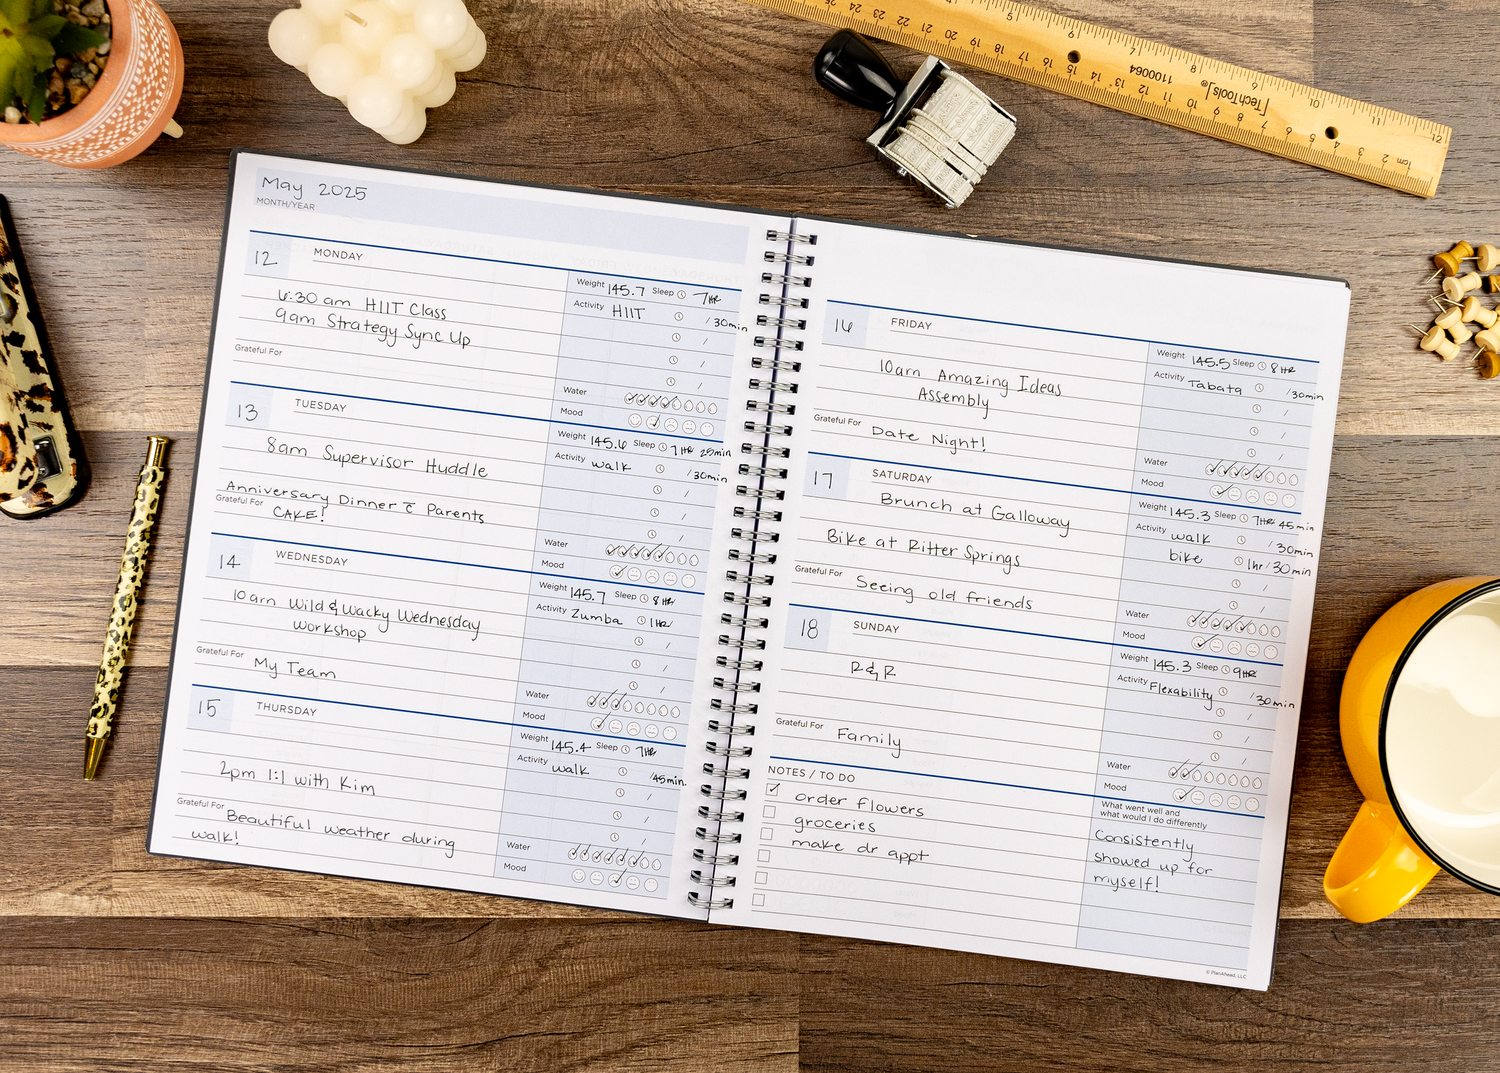 May 2025
MONTH/YEAR
12 MONDAY
6:30 am HIIT Class
9am Strategy Sync Up
Grateful For
Weight 145.7 Sleep 7HR
Activity HIIT / 30min
/
/
/
Water
Mood
13 TUESDAY
8am Supervisor Huddle
Anniversary Dinner c̄ Parents
Grateful For CAKE!
Weight 145.6 Sleep 7HR 25min
Activity walk / 30min
/
/
/
Water
Mood
14 WEDNESDAY
10am Wild & Wacky Wednesday
Workshop
Grateful For My Team
Weight 145.7 Sleep 8HR
Activity Zumba 1HR/
/
/
/
Water
Mood
15 THURSDAY
2pm 1:1 with Kim
Grateful For Beautiful weather during
walk!
Weight 145.4 Sleep 7HR
Activity walk /45min.
/
/
/
Water
Mood
16 FRIDAY
10am Amazing Ideas
Assembly
Grateful For Date Night!
Weight 145.5 Sleep 8HR
Activity Tabata / 30min
/
/
/
Water
Mood
17 SATURDAY
Brunch at Galloway
Bike at Ritter Springs
Grateful For Seeing old friends
Weight 145.3 Sleep 7HR 45min
Activity walk / 30min
bike 1hr/30min
/
/
Water
Mood
18 SUNDAY
R&R
Grateful For Family
Weight 145.3 Sleep 9HR
Activity Flexability / 30min
/
/
/
Water
Mood
NOTES / TO DO
order flowers
groceries
make dr appt
What went well and
what would I do differently
Consistently
showed up for
myself!
© PlanAhead, LLC
TechTools 1100064